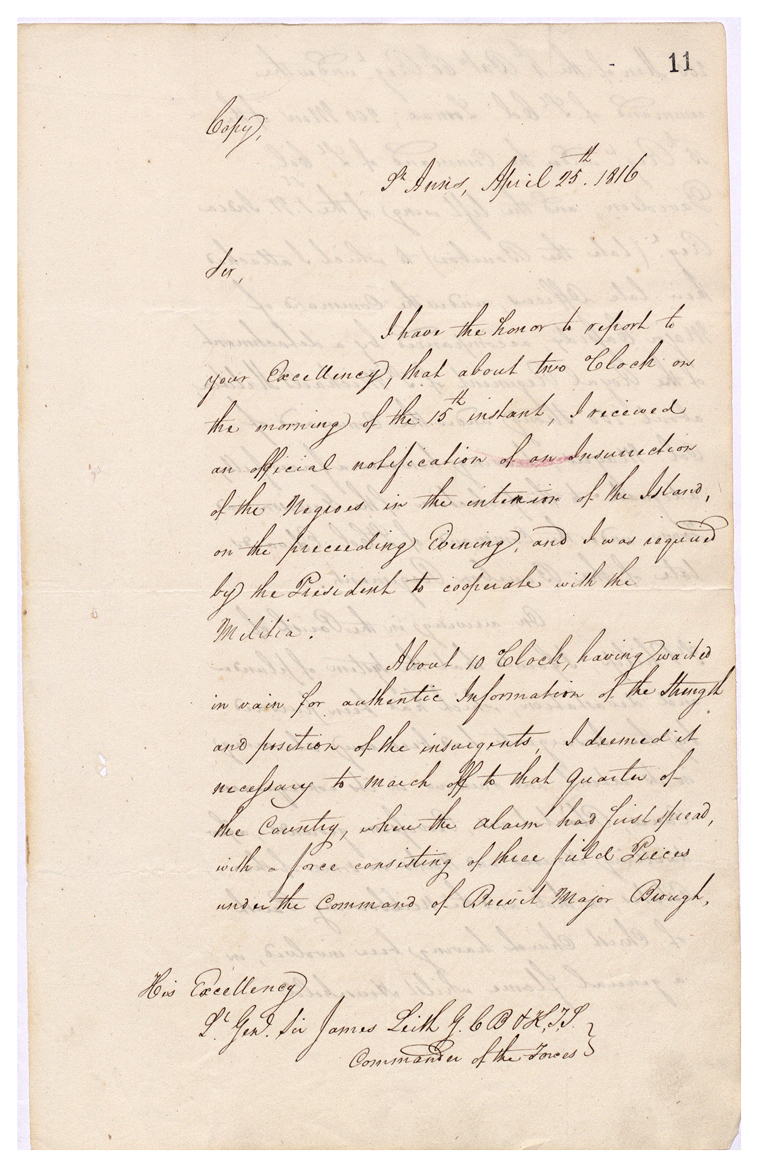 11
Copy,
St Ann's, April 25th. 1816
Sir,
I have the honor to report to
your Excellency, that about two Clock on
the morning of the 15th instant, I received
an official notification of an Insurrection
of the Negroes in the interior of the Island,
on the preceeding Evening, and I was required
by the President to cooperate with the
Militia.
About 10 Clock, having waited
in vain for authentic Information of the Strength
and position of the insurgents, I deemed it
necessary to march off to that quarter of
the Country, where the alarm had first spread,
with a force consisting of three field Pieces
under the Command of Brevet Major Brough,
His Excellency
Lt. Genl. Sir James Leith G.C.B &
Commander of the Forces